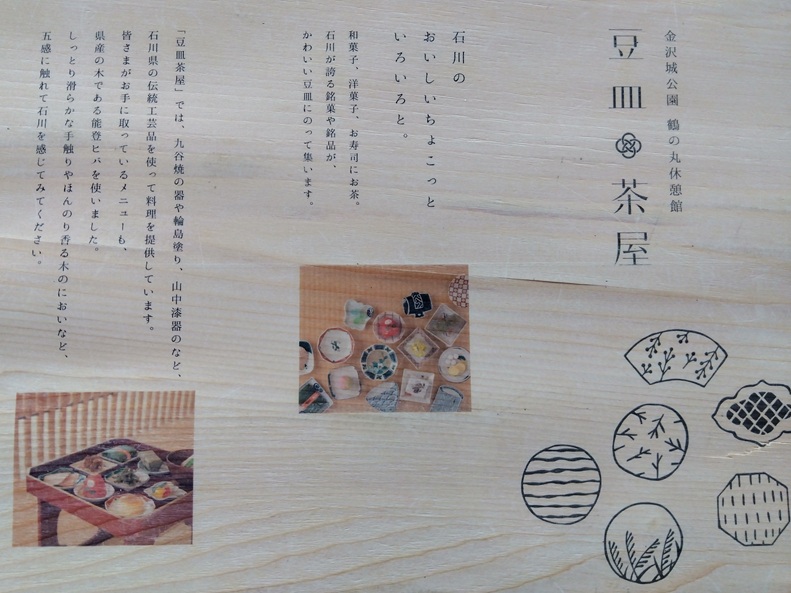 金沢城公園 鶴の丸休憩館
豆皿茶屋
石川の
おいしいちょこっと
いろいろと。
和菓子、洋菓子、お寿司にお茶。
石川が誇る銘菓や銘品が、
かわいい豆皿にのって集います。
「豆皿茶屋」では、九谷焼の器や輪島塗り、山中漆器のなど、
石川県の伝統工芸品を使って料理を提供しています。
皆さまがお手に取っているメニューも、
県産の木である能登ヒバを使いました。
しっとり滑らかな手触りやほんのり香る木のにおいなど、
五感に触れて石川を感じてみてください。